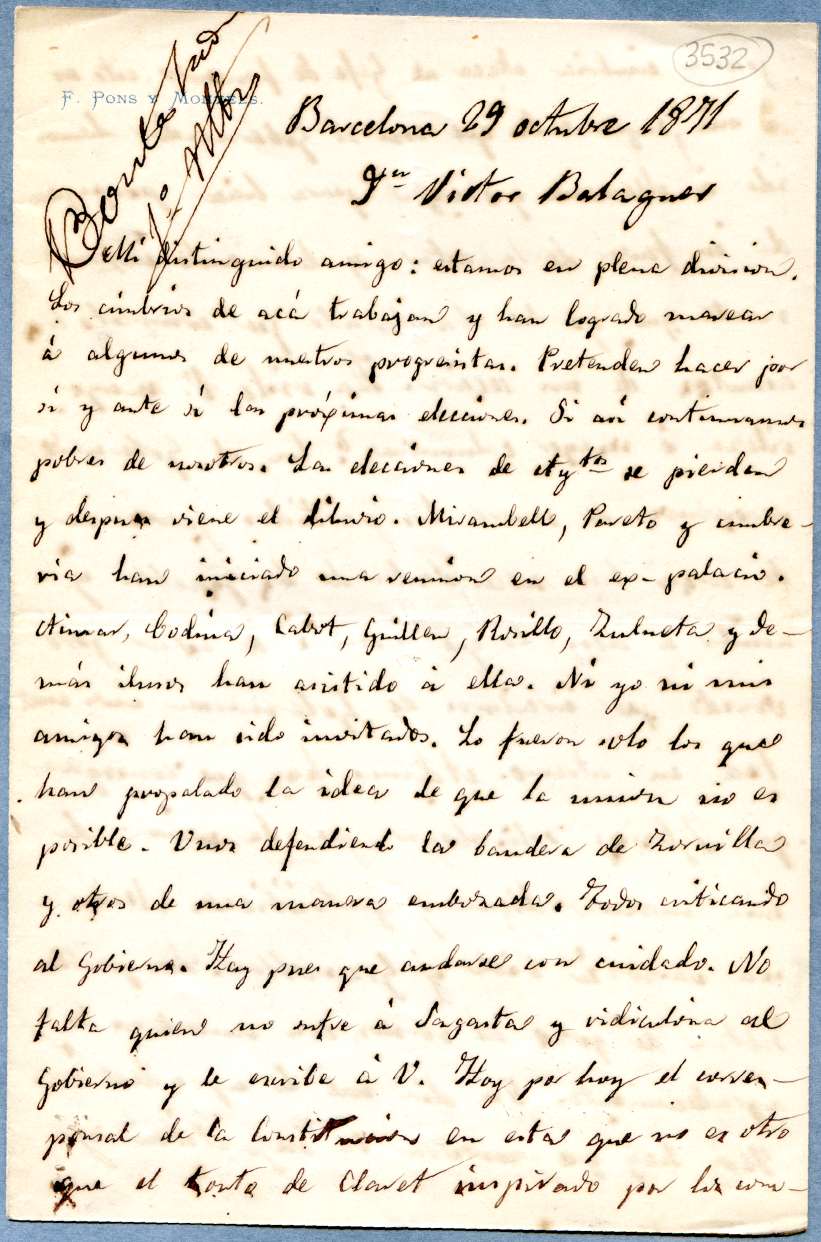 3532
F. PONS Y MONTELS.
Barcelona 29 octubre 1871
Sr Victor Balaguer
Mi distinguido amigo: estamos en plena division.
Los cimbrios de acá trabajan y han logrado marear
á algunos de nuestros progresistas. Pretenden hacer por
si y ante si las próximas elecciones. Si asi continuamos
pobres de nosotros. Las elecciones de Aytos se pierden
y despues viene el diluvio. Mirambell, Pareto y cimbre-
ria han iniciado una reunion en el ex-palacio.
Aimar, Codina, Cabot, Guillen, Rosillo, Zulueta y de-
más ilusos han asistido á ella. Ni yo ni mis
amigos han sido invitados. Lo fueron solo los que
han propalado la idea de que la union no es
posible. Unos defendiendo la bandera de Zorrilla
y otros de una manera embozada. Todos criticando
al Gobierno. Hay pues que andarse con cuidado. No
falta quien no sufre á Sagasta y ridiculiza al
Gobierno y le escribe á V. Hoy por hoy el corres-
ponsal de la Constitucion en esta que no es otro
que el tonto de Claret inspirado por los com-